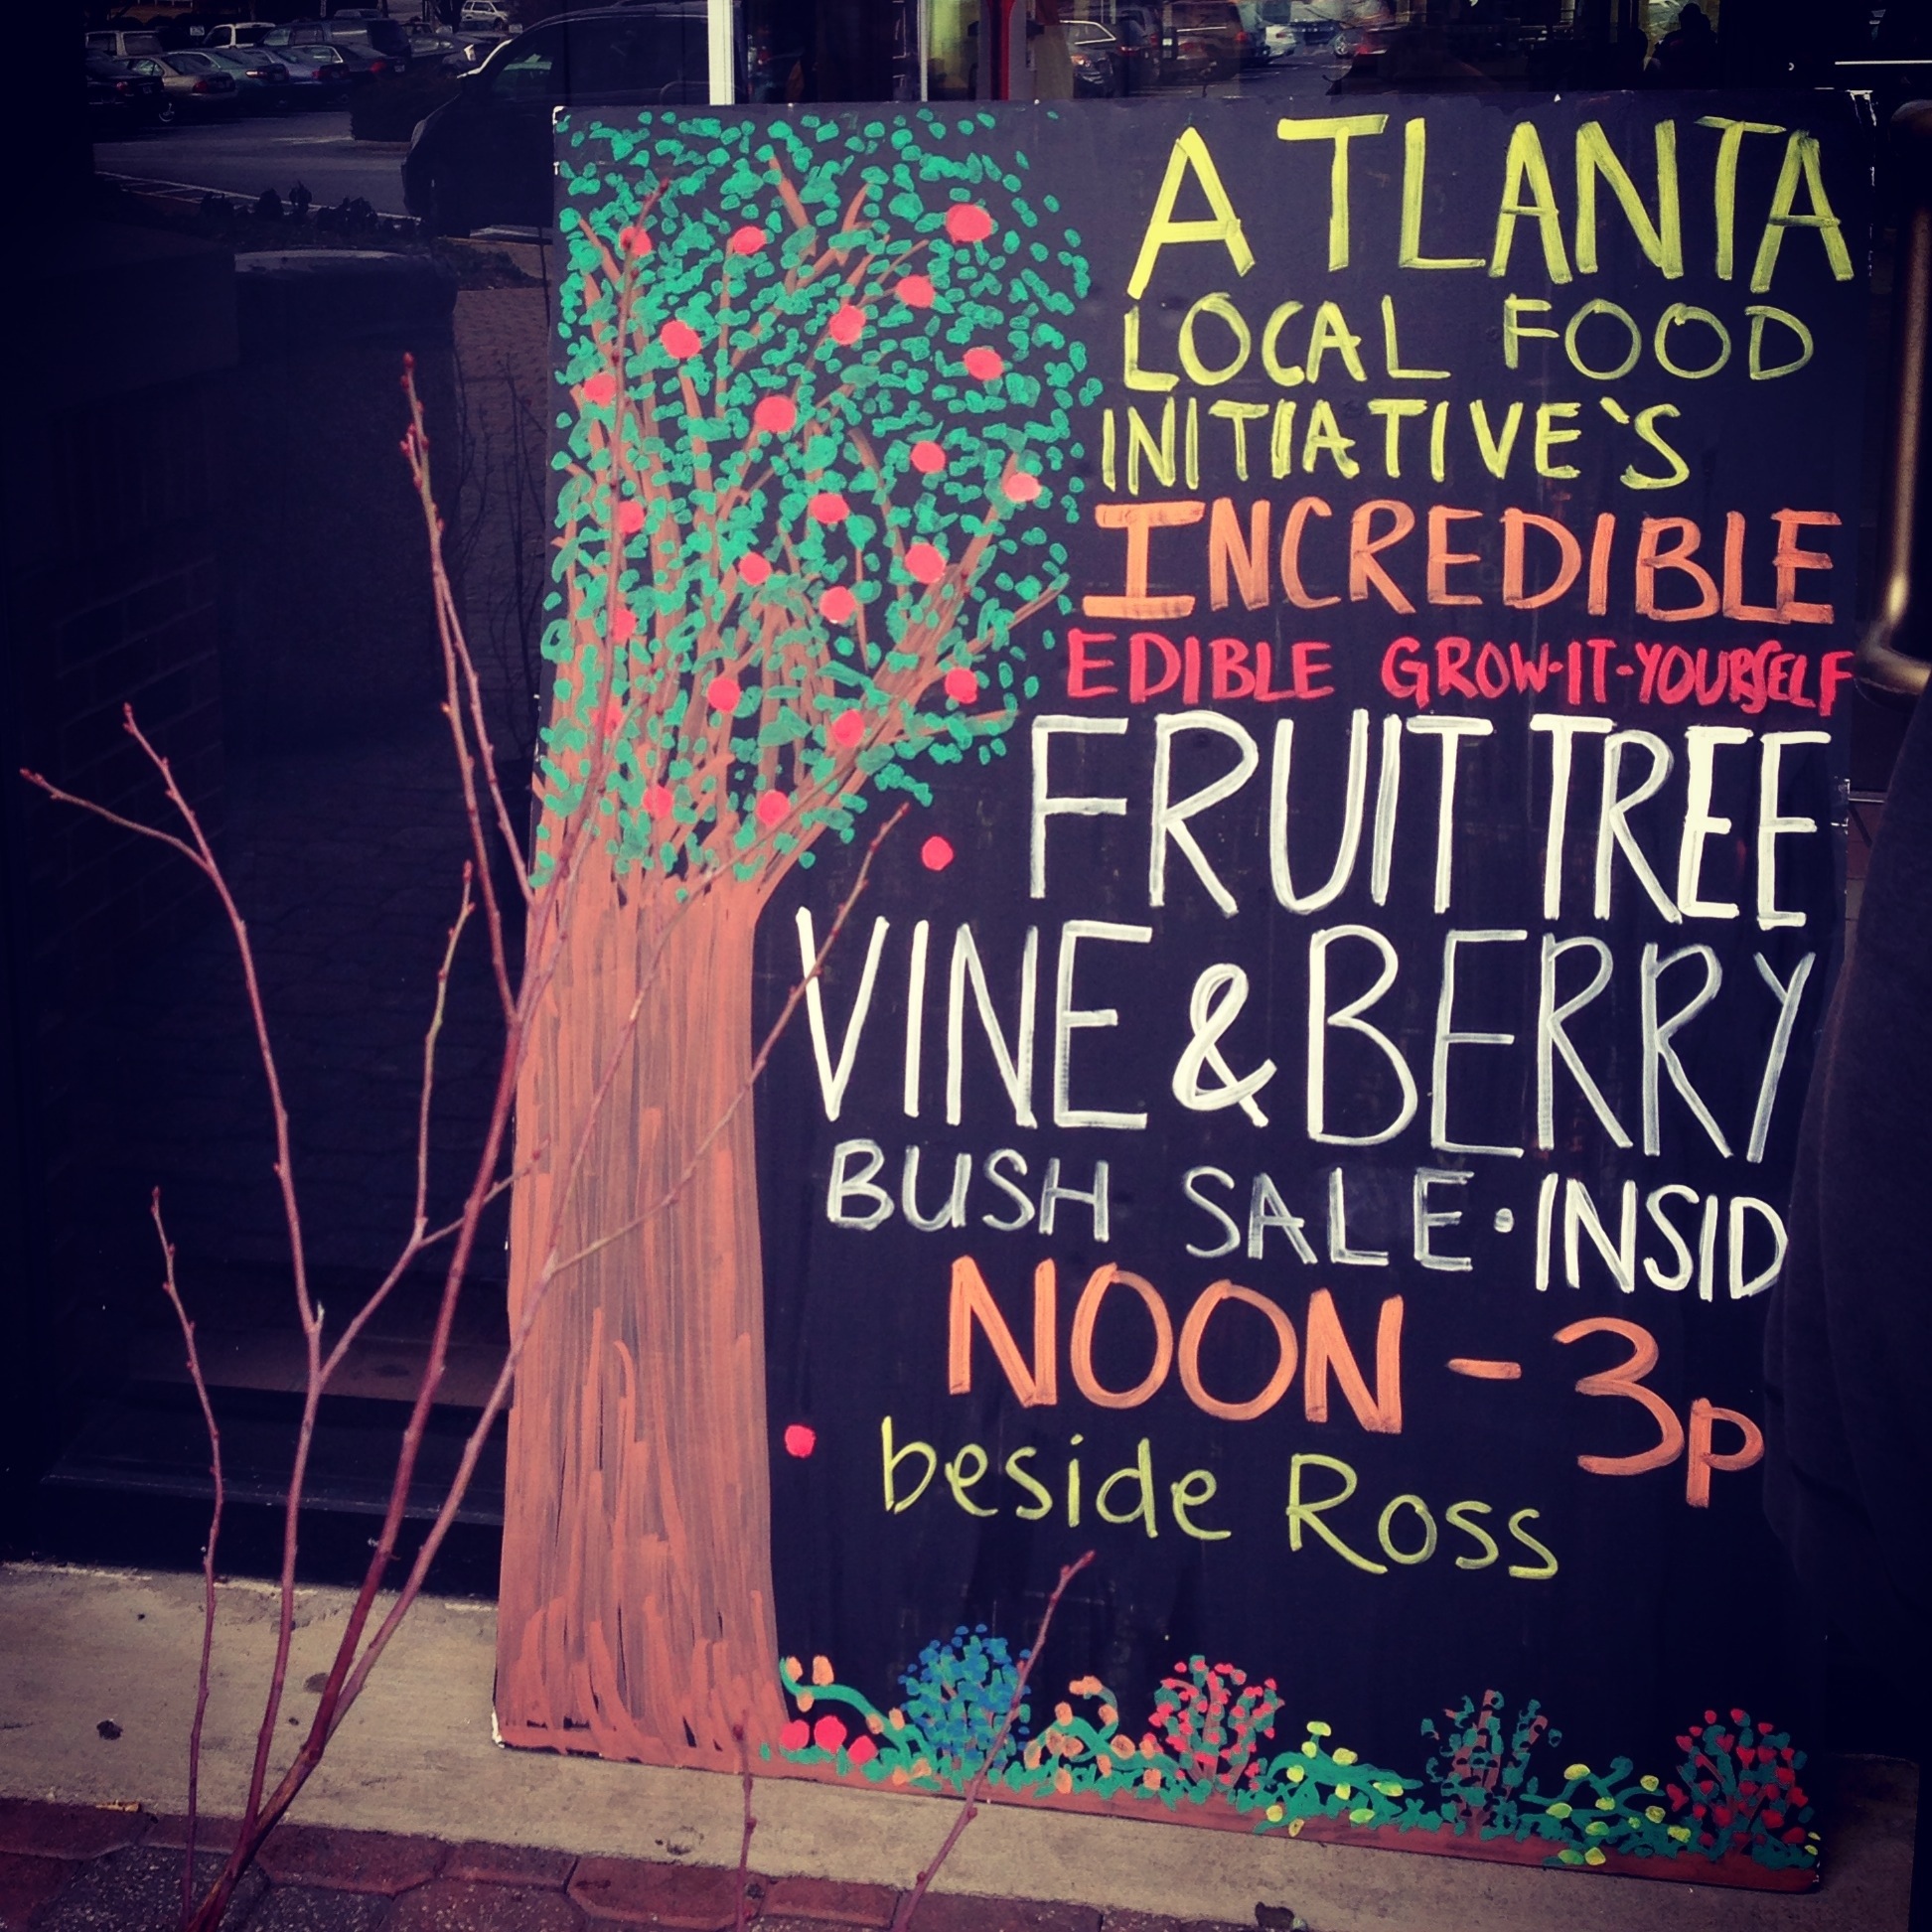 ATLANTA
LOCAL FOOD
INITIATIVE'S
INCREDIBLE
EDIBLE GROW-IT-YOURSELF
FRUIT TREE
VINE & BERRY
BUSH SALE • INSID
NOON - 3p
beside Ross